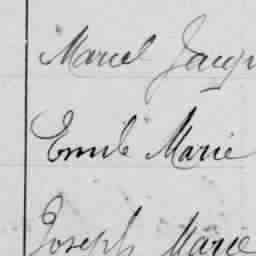 Marcel Jacq
Emile Marie
Joseph Marie